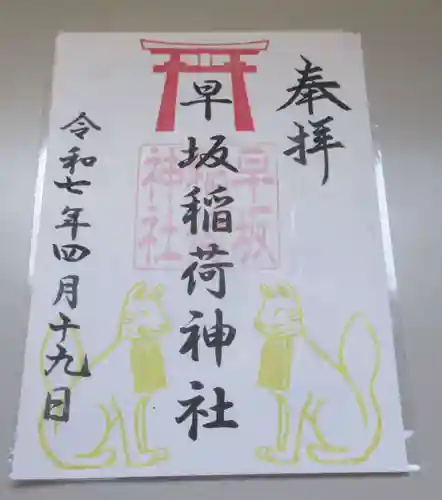 奉拝
早坂稲荷神社
早坂稲荷神社
令和七年四月十九日